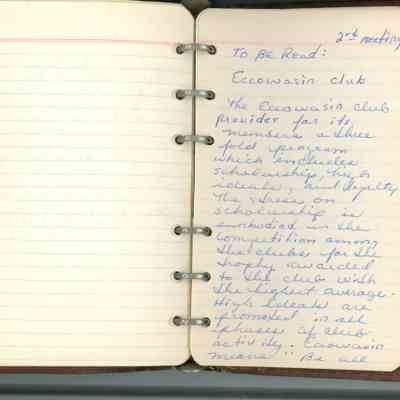 2nd meeting
To Be Read:
Eccowasin club
The Eccowasin club
provider for its
members a three
fold program
which includes
scholarship, high
ideals, and loyalty
The stress on
scholarship is
embodied in the
competition among
the clubs for the
trophy awarded
to the club with
the highest average.
High ideals are
promoted in all
phases of club
activity. Eccowasin
means "Be all